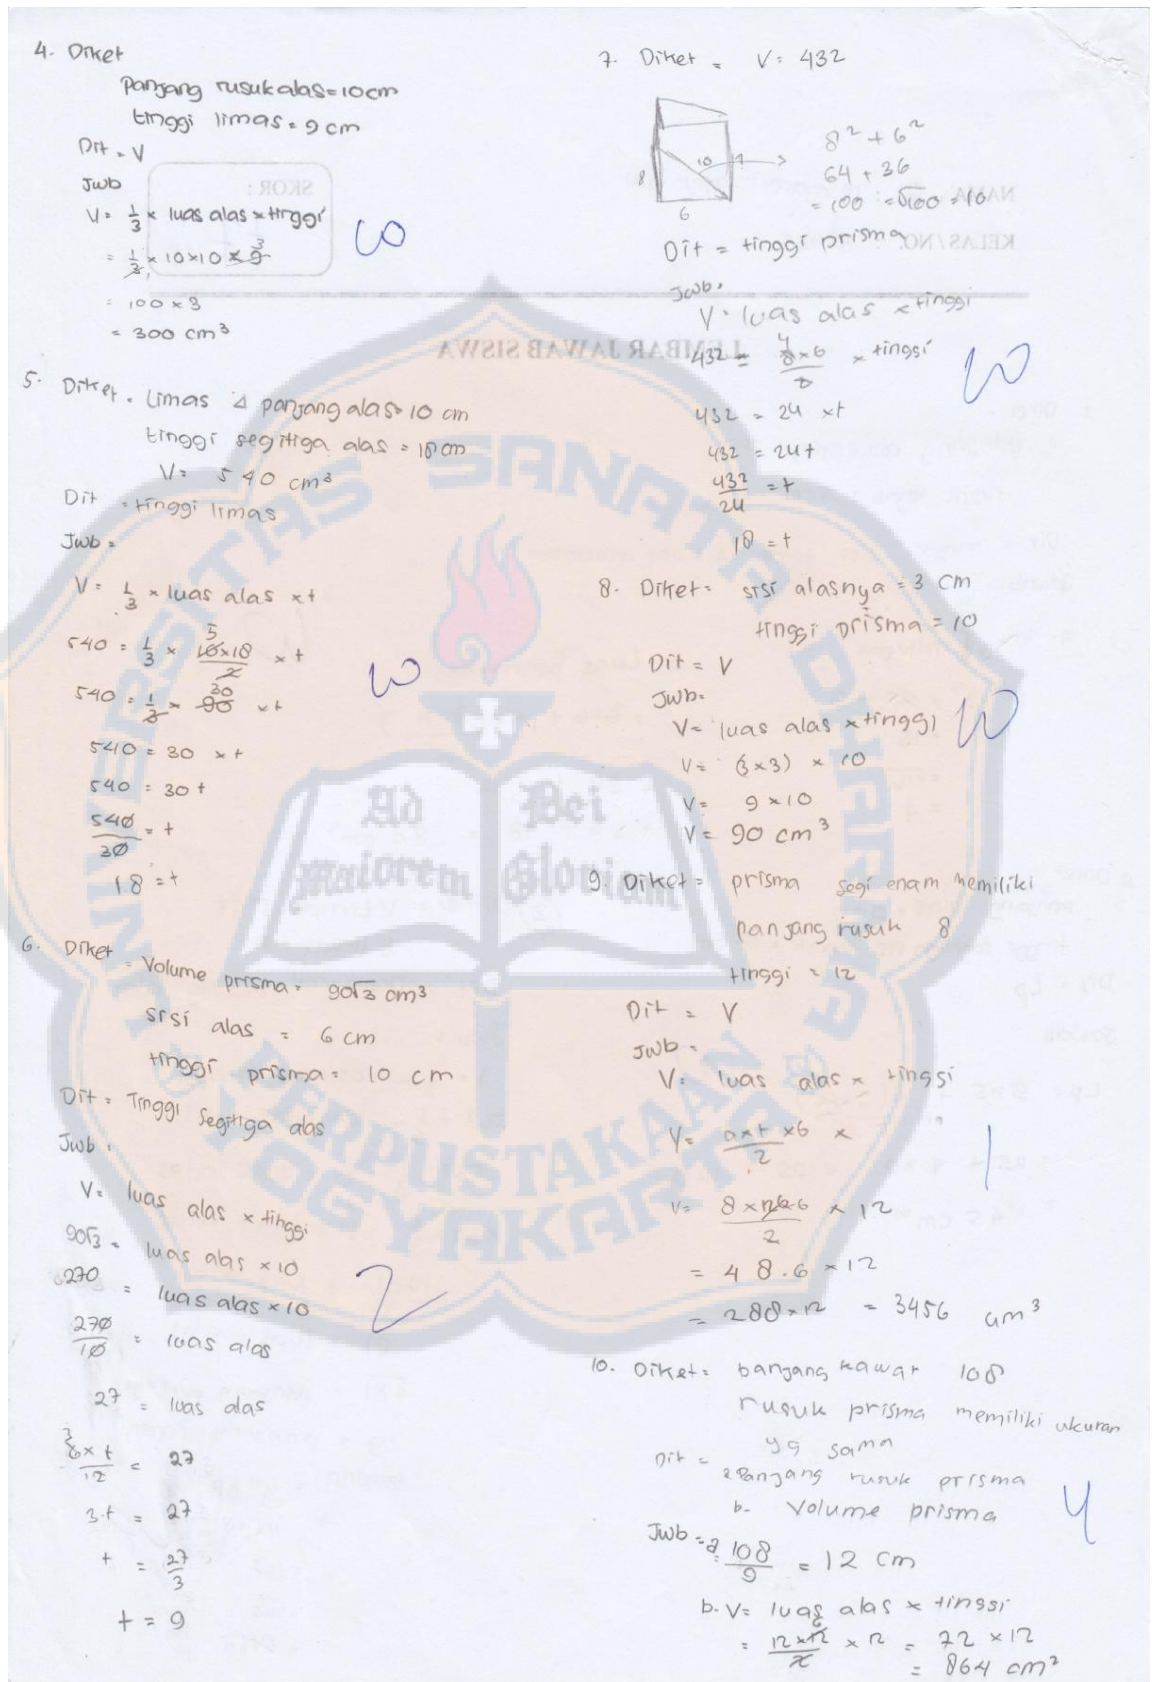 4. Diket
Panjang rusuk alas = 10 cm
tinggi limas = 9 cm
Dit = V
Jwb
V = 1/3 × luas alas × tinggi
= 1/3 × 10 × 10 × 9 3
= 100 × 3
= 300 cm³
10
5. Diket = Limas △ panjang alas = 10 cm
tinggi segitiga alas = 18 cm
V = 540 cm³
Dit = tinggi limas
Jwb =
V = 1/3 × luas alas × t
540 = 1/3 × 5 10×18/2 × t
540 = 1/3 × 90 30 × t
540 = 30 × t
540 = 30 t
540/30 = t
18 = t
10
6. Diket = Volume prisma = 90√3 cm³
sisi alas = 6 cm
tinggi prisma = 10 cm
Dit = Tinggi segitiga alas
Jwb :
V = luas alas × tinggi
90√3 = luas alas × 10
270 = luas alas × 10
270/10 = luas alas
27 = luas alas
3 6 × t/12 = 27
3.t = 27
t = 27/3
t = 9
2
7. Diket = V = 432
8
10
6
8² + 6²
64 + 36
= 100 = √100 = 10
Dit = tinggi prisma
Jwb.
V = luas alas × tinggi
432 = 4 8×6/2 × tinggi
432 = 24 × t
432 = 24 t
432/24 = t
18 = t
10
8. Diket = sisi alasnya = 3 cm
tinggi prisma = 10
Dit = V
Jwb.
V = luas alas × tinggi
V = (3×3) × 10
V = 9 × 10
V = 90 cm³
10
9. Diket = prisma segi enam memiliki
panjang rusuk 8
tinggi = 12
Dit = V
Jwb =
V = luas alas × tinggi
V = a×t/2 × 6 ×
V = 8 × 12 × 6/2 × 12
= 48 . 6 × 12
= 288 × 12 = 3456 cm³
1
10. Diket = panjang kawat 108
rusuk prisma memiliki ukuran
yg sama
Dit = a Panjang rusuk prisma
b. Volume prisma
Jwb = a. 108/9 = 12 cm
b. V = luas alas × tinggi
= 12×12 6/2 × 12 = 72 × 12
= 864 cm²
4
NAMA
KELAS/NO.
SKOR :
LEMBAR JAWAB SISWA
UNIVERSITAS SANATA DHARMA
Ad maiorem Dei Gloriam
PERPUSTAKAAN
YOGYAKARTA